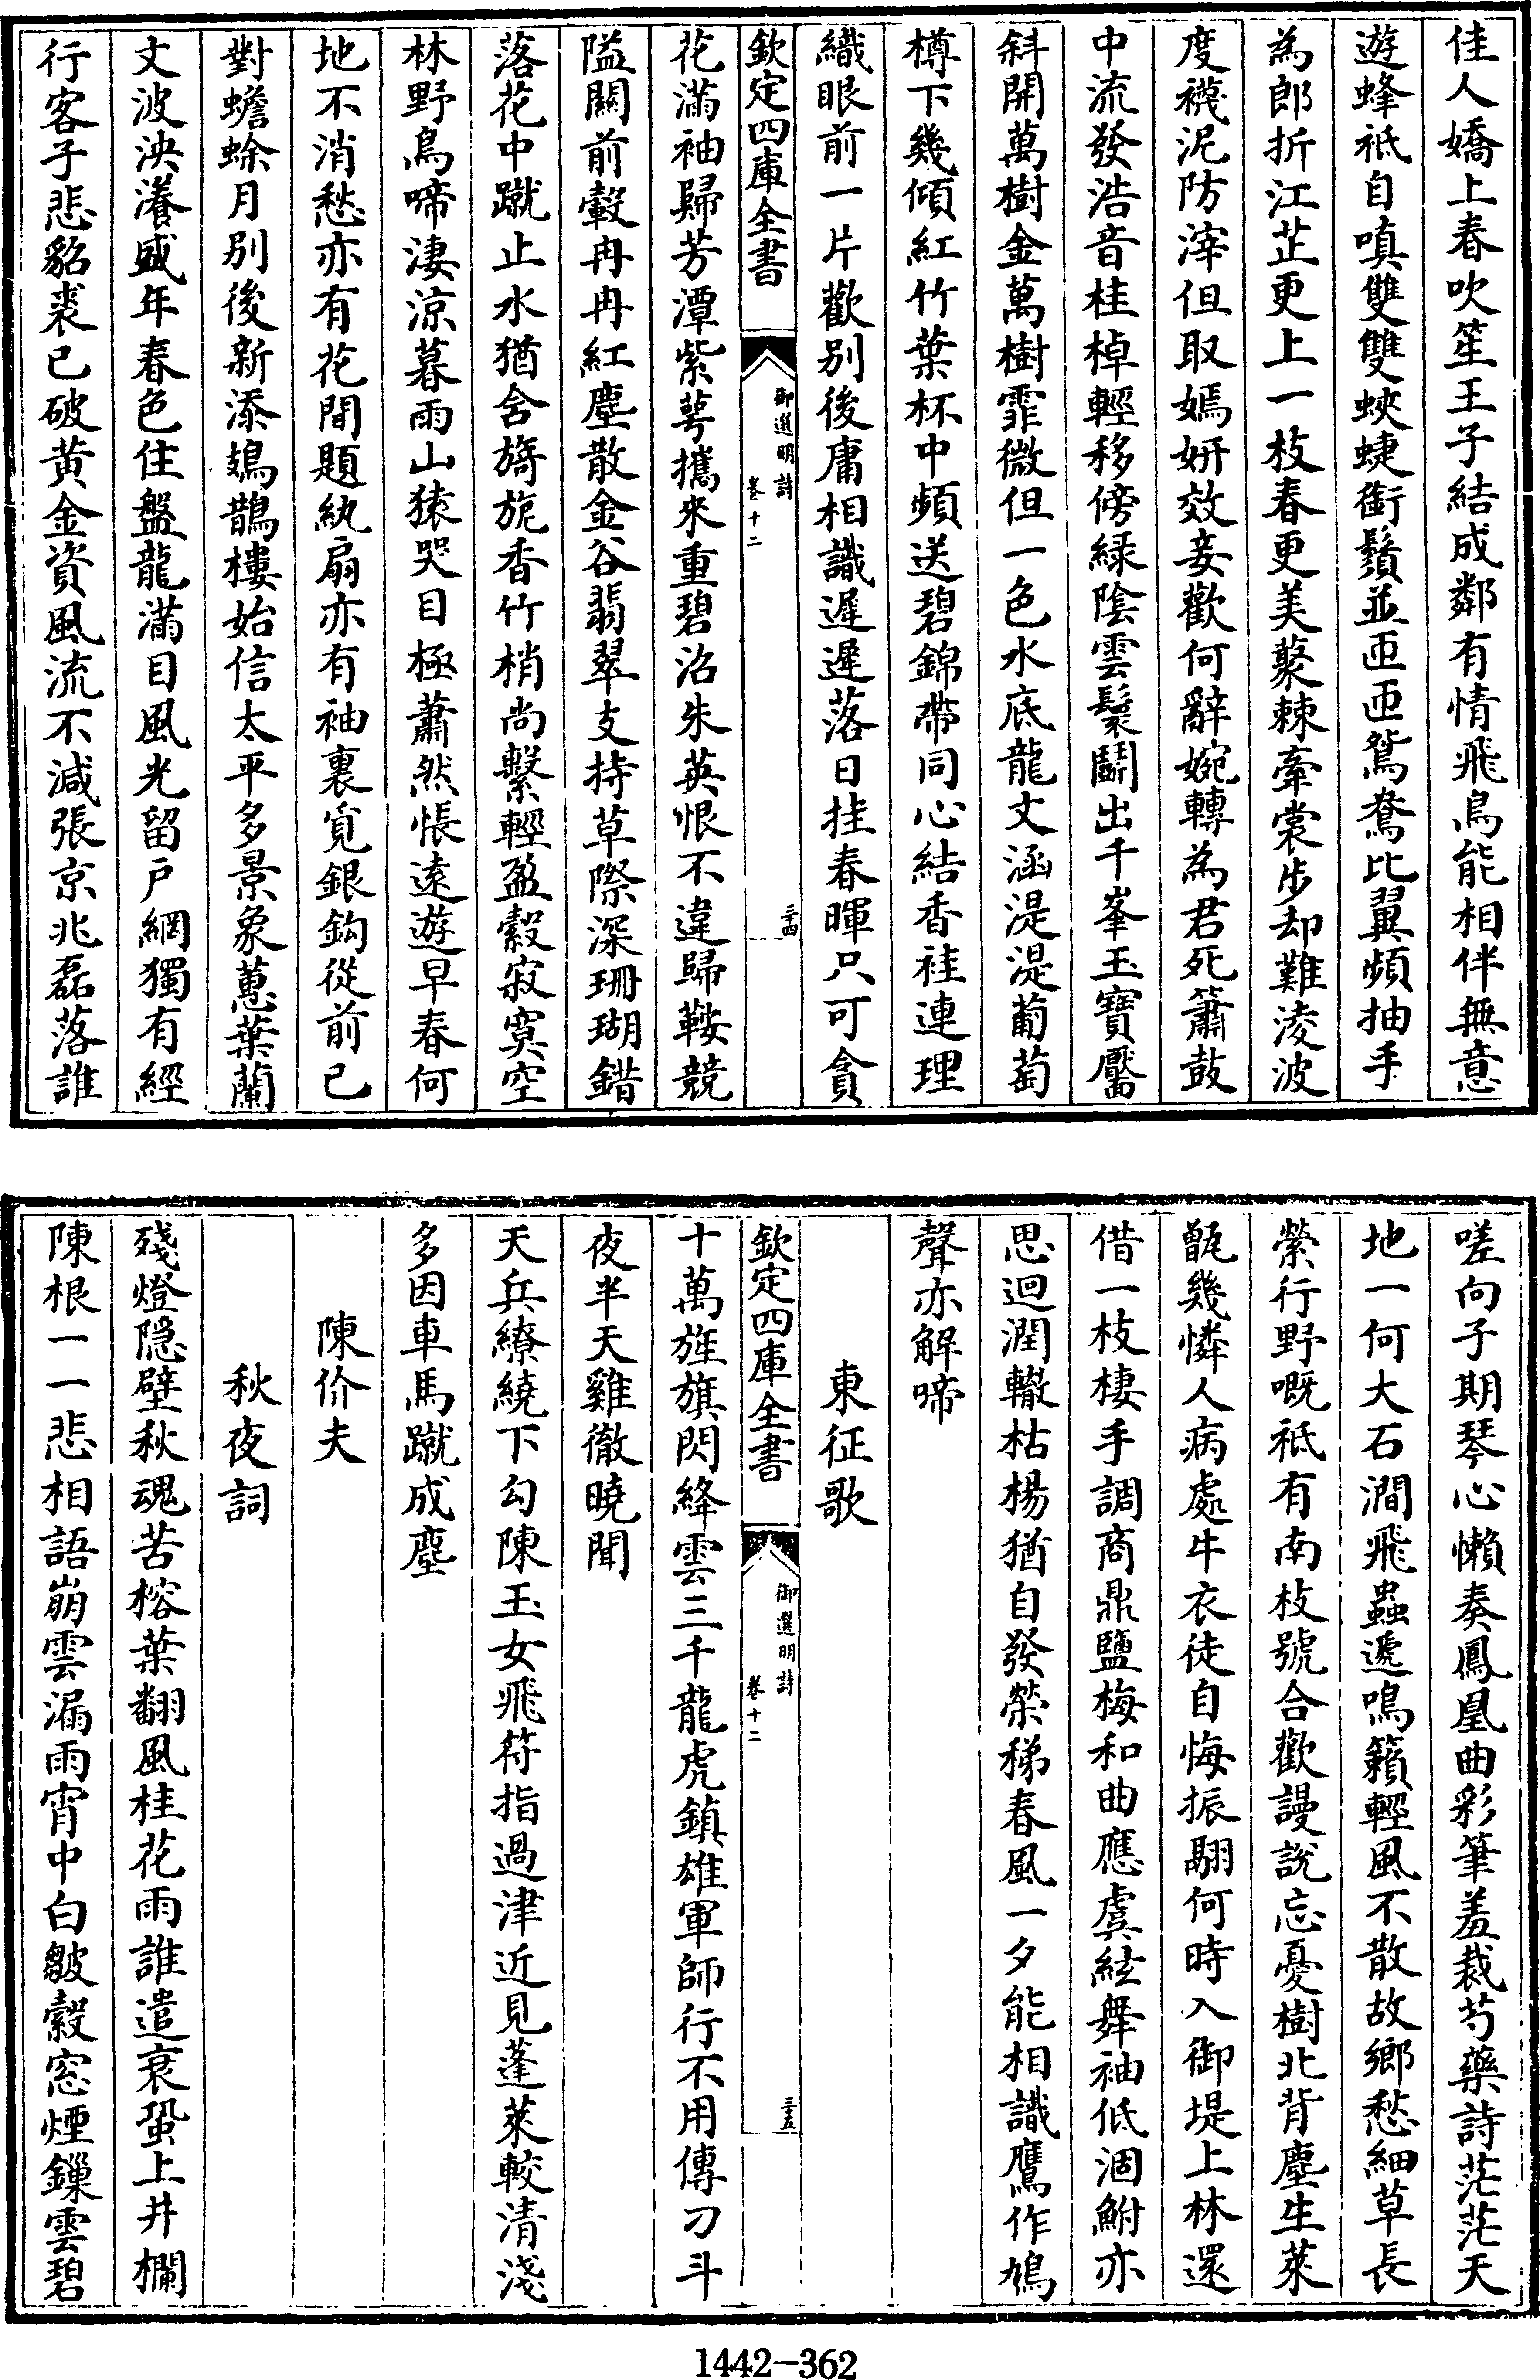 佳人嬌上春吹笙王子結成鄰有情飛鳥能相伴無意
遊蜂祗自嗔雙雙蛺蜨銜鬚並匝匝鴛鴦比翼頻抽手
為郎折江芷更上一枝春更美藂棘牽裳步却難淩波
度襪泥防滓但取嫣妍效妾歡何辭婉轉為君死簫鼓
中流發浩音桂棹輕移傍緑陰雲鬟鬭出千峯玉寶靨
斜開萬樹金萬樹霏微但一色水底龍文涵湜湜葡萄
樽下幾傾紅竹葉杯中頻送碧錦帶同心結香袿連理
織眼前一片歡别後庸相識遲遲落日挂春暉只可貪
欽定四庫全書
御選明詩
卷十二
三十四
花滿袖歸芳潭紫萼攜來重碧沼朱英恨不違歸鞍競
隘關前轂冉冉紅塵散金谷翡翠支持草際深珊瑚錯
落花中蹴止水猶含旖旎香竹梢尚繫輕盈縠寂寞空
林野鳥啼淒涼暮雨山猿哭目極蕭然悵遠遊早春何
地不消愁亦有花間題紈扇亦有袖裏覓銀鈎從前已
對蟾蜍月别後新添鳷鵲樓始信太平多景象蕙葉蘭
文波泱瀁盛年春色住盤龍滿目風光留戸網獨有經
行客子悲貂裘已破黄金資風流不減張京兆磊落誰
嗟向子期琴心懶奏鳳凰曲彩筆羞裁芍藥詩茫茫天
地一何大石澗飛蟲遞鳴籟輕風不散故鄉愁細草長
縈行野嘅祗有南枝號合歡謾説忘憂樹北背塵生萊
甑幾憐人病處牛衣徒自悔振翮何時入御堤上林還
借一枝棲手調商鼎鹽梅和曲應虞絃舞袖低涸鮒亦
思迴潤轍枯楊猶自發榮稊春風一夕能相識鷹作鳩
聲亦解啼
東征歌
欽定四庫全書
御選明詩
卷十二
三十五
十萬旌旗閃絳雲三千龍虎鎮雄軍師行不用傳刁斗
夜半天雞徹曉聞
天兵繚繞下勾陳玉女飛符指過津近見蓬萊較清淺
多因車馬蹴成塵
陳价夫
秋夜詞
殘燈隠壁秋魂苦榕葉翻風桂花雨誰遣衰蛩上井欄
陳根一一悲相語崩雲漏雨宵中白皺縠窓煙鏁雲碧
1442-362